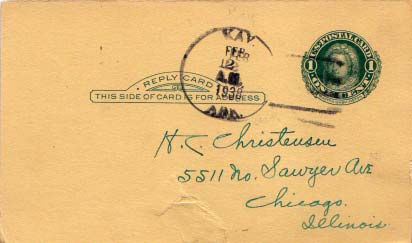 KAY
FEB
12
A.M.
1938
ARK.
U.S. POSTAL CARD
1 1
ONE CENT
REPLY CARD
THIS SIDE OF CARD IS FOR ADDRESS
H. C. Christensen
5511 No. Sawyer Ave
Chicago.
Illinois.